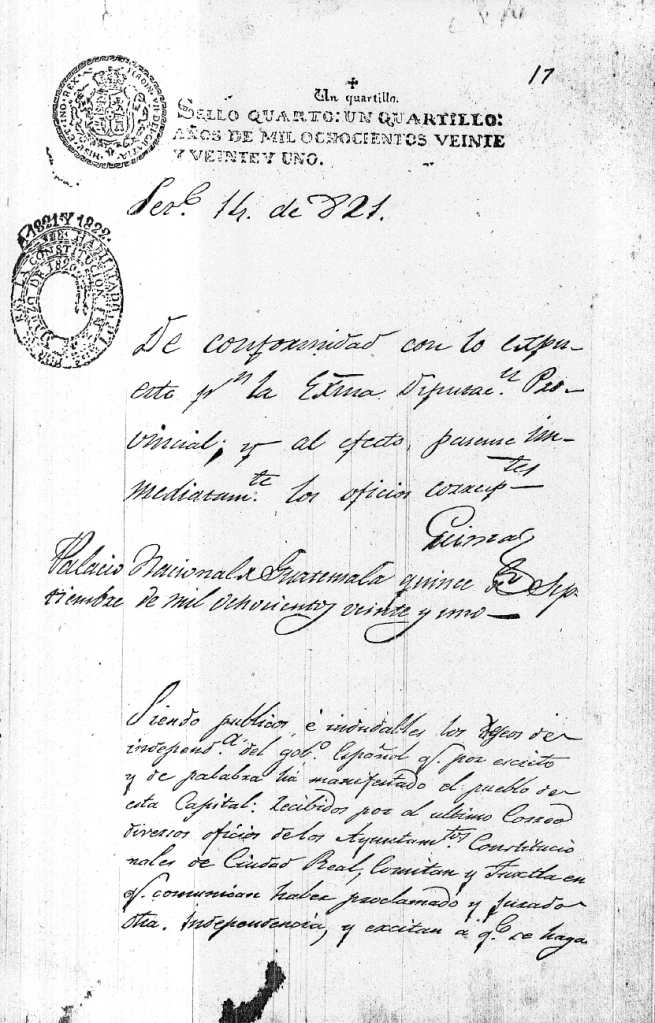 17
Un quartillo.
SELLO QUARTO: UN QUARTILLO:
AÑOS DE MIL OCHOCIENTOS VEINTE
Y VEINTE Y UNO.
HISPAN. ET IND. REX
DEI GRATIA
Sere. 14. de 821.
A 1821 Y 1822.
HABILITADO
LA CONSTITUCION
DE 1820
De conformidad con lo expu-
esto pr. la Exma. Diputacn. Pro-
vincial; y al efecto, pasense in-
mediatamte. los oficios corresptes
Palacio Nacional de Guatemala quince de Sep-
tiembre de mil ochocientos veinte y uno—
Siendo publicos, é indudables los deseos de
independa. del gobo. Español q. por escrito
y de palabra há manifestado el pueblo de
esta Capital: recibidos por el ultimo Correo
diversos oficios de los Ayuntamtos. Constitucio
nales de Ciudad Real, Comitan y Tuxtla en
q. comunican haber proclamado y jurado
dha. Independencia, y excitan a qe. se haga